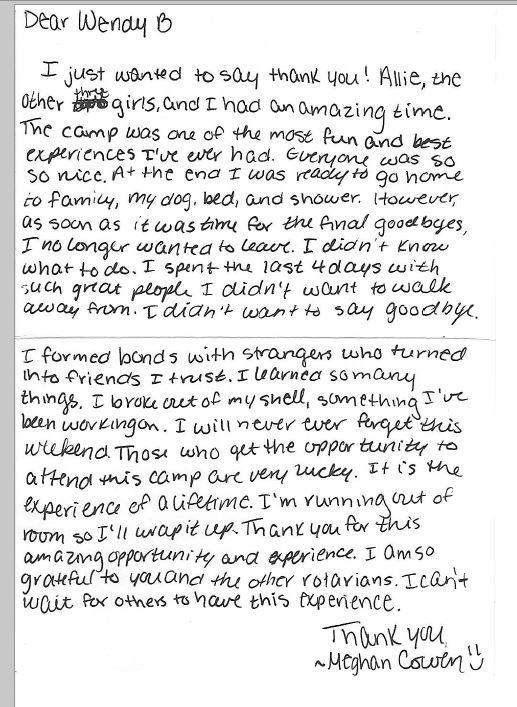 Dear Wendy B
I just wanted to say thank you! Allie, the
other three girls, and I had an amazing time.
The camp was one of the most fun and best
experiences I've ever had. Everyone was so
so nice. At the end I was ready to go home
to family, my dog, bed, and shower. However,
as soon as it was time for the final goodbyes,
I no longer wanted to leave. I didn't know
what to do. I spent the last 4 days with
such great people I didn't want to walk
away from. I didn't want to say goodbye.
I formed bonds with strangers who turned
into friends I trust. I learned so many
things. I broke out of my shell, something I've
been working on. I will never ever forget this
weekend. Those who get the opportunity to
attend this camp are very lucky. It is the
experience of a lifetime. I'm running out of
room so I'll wrap it up. Thank you for this
amazing opportunity and experience. I am so
grateful to you and the other rotarians. I can't
wait for others to have this experience.
Thank you,
~Meghan Cowen